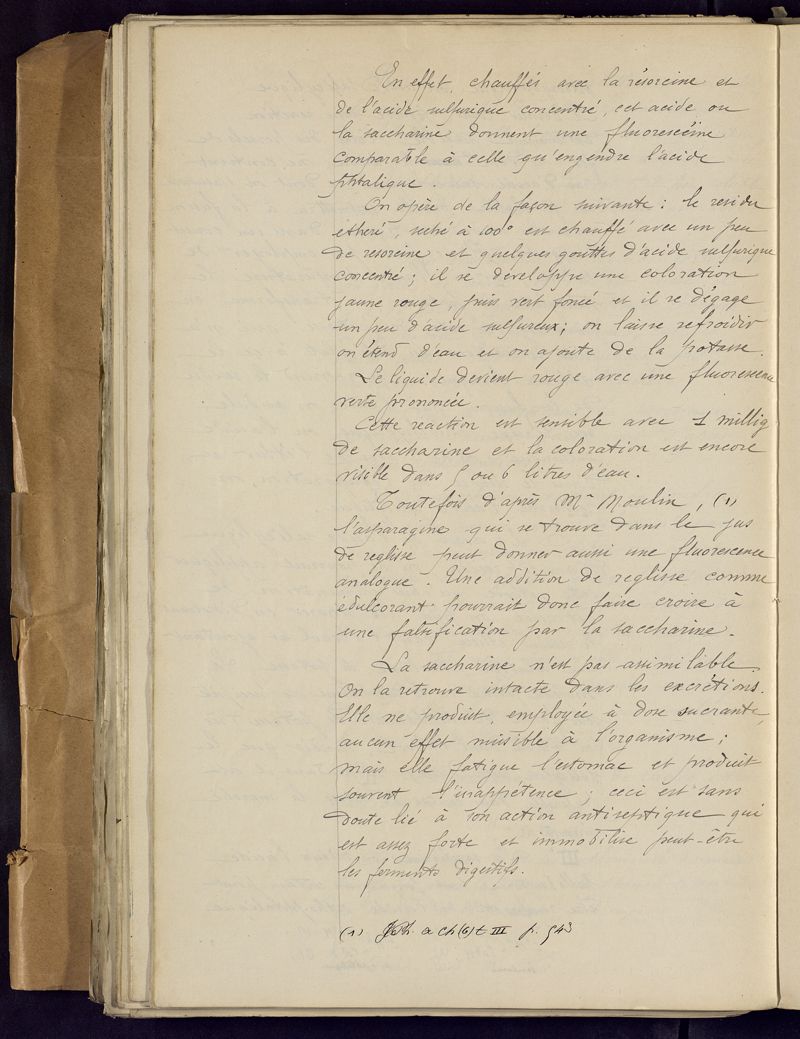 En effet, chauffés avec la résorcine et
de l'acide sulfurique concentré, cet acide ou
la saccharine donnent une fluorescéine
comparable à celle qu'engendre l'acide
phtalique.
On opère de la façon suivante : le residu
étheré, seché à 100° est chauffé avec un peu
de resorcine et quelques gouttes d'acide sulfurique
concentré ; il se developpe une coloration
jaune rouge, puis vert foncé et il se dégage
un peu d'acide sulfureux ; on laisse refroidir
on étend d'eau et on ajoute de la potasse.
Le liquide devient rouge avec une fluorescence
verte prononcée.
Cette reaction est sensible avec 1 millig
de saccharine et la coloration est encore
visible dans 5 ou 6 litres d'eau.
Toutefois d'après Mr Moulin, (1)
l'asparagine qui se trouve dans le jus
de reglisse peut donner aussi une fluorescence
analogue. Une addition de reglisse comme
édulcorant pourrait donc faire croire à
une falsification par la saccharine.
La saccharine n'est pas assimilable.
On la retrouve intacte dans les excrétions.
Elle ne produit, employée à dose sucrante,
aucun effet nuisible à l'organisme ;
mais elle fatigue l'estomac et produit
souvent l'inappétence ; ceci est sans
doute lié à son action antiseptique qui
est assez forte et immobilise peut-être
les ferments digestifs.
(1) J. Ph. et Ch (6) t III p. 543